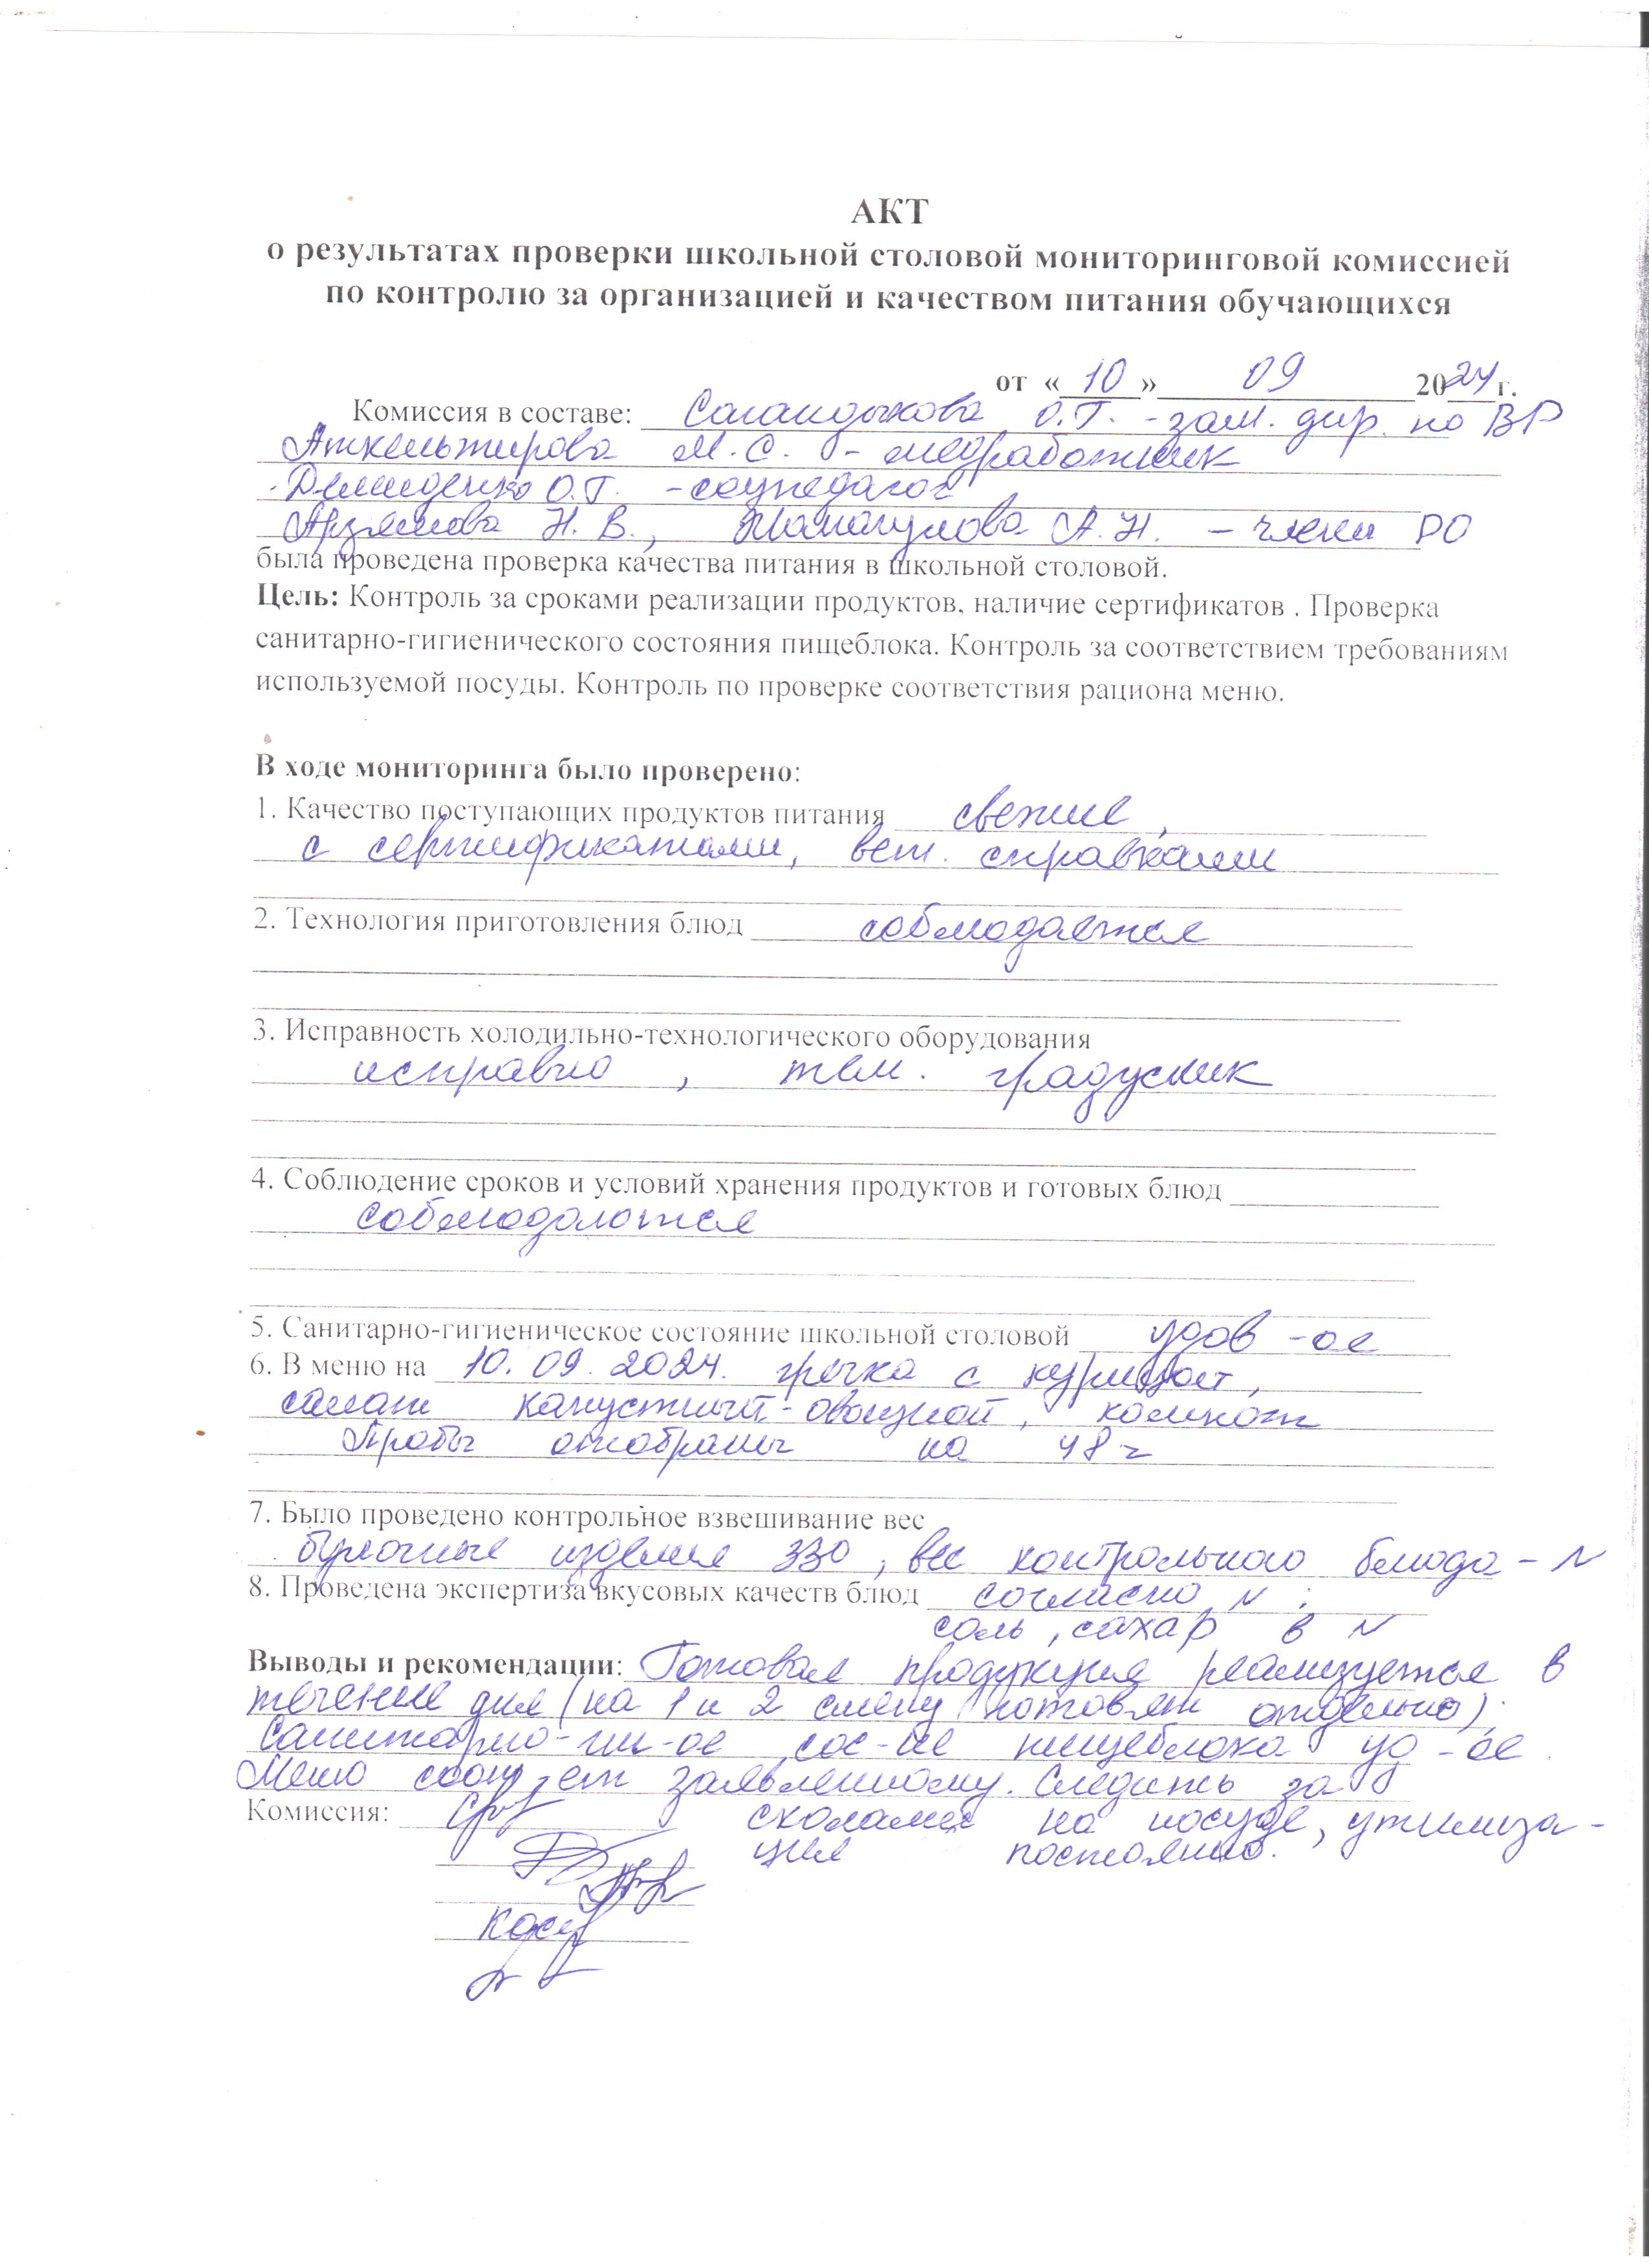 АКТ
о результатах проверки школьной столовой мониторинговой комиссией
по контролю за организацией и качеством питания обучающихся
от « 10 » 09 2024 г.
Комиссия в составе: Сагандыкова О.Т. - зам. дир. по ВР
Аткельтирова М.С. - медработник
Демиденко О.Г. - соцпедагог
Арзямова Н.В., Жаманулова А.Н. - члены РО
была проведена проверка качества питания в школьной столовой.
Цель: Контроль за сроками реализации продуктов, наличие сертификатов . Проверка
санитарно-гигиенического состояния пищеблока. Контроль за соответствием требованиям
используемой посуды. Контроль по проверке соответствия рациона меню.
В ходе мониторинга было проверено:
1. Качество поступающих продуктов питания свежие,
с сертификатами, вет. справками
2. Технология приготовления блюд соблюдается
3. Исправность холодильно-технологического оборудования
исправно, тем. градусник
4. Соблюдение сроков и условий хранения продуктов и готовых блюд
соблюдаются
5. Санитарно-гигиеническое состояние школьной столовой удов-ое
6. В меню на 10.09.2024. гречка с курицой,
салат капустный-овощной, компот
Пробы отобраны на 48ч
7. Было проведено контрольное взвешивание вес
булочные изделия 330, вес контрольного блюда - N
8. Проведена экспертиза вкусовых качеств блюд согласно N ;
соль, сахар в N
Выводы и рекомендации: Готовая продукция реализуется в
течение дня (на 1 и 2 смену готовят отдельно);
Санитарно-ги-ое сос-ие пищеблока уд-ое.
Меню соот-ет заявленному. Следить за
Комиссия: сколами на посуде, утилиза-
ция постоянно.